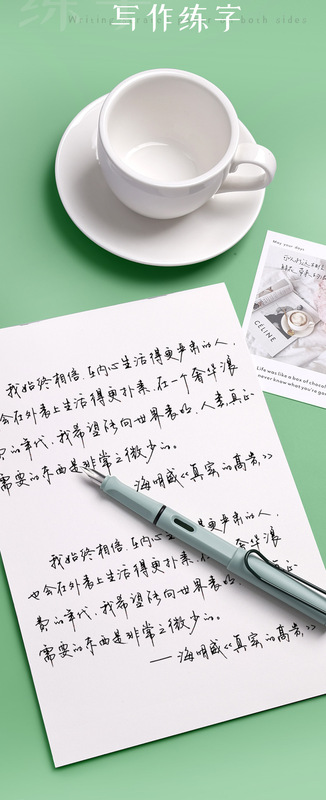 写作练字
Writing
both sides
May your days
CELINE
Life was like a box of chocol
never know what you're go
我始终相信,在内心生活得更严肃的人,
会在外表上生活得更朴素,在一个奢华浪
的年代,我希望能向世界表明,人类真正
需要的东西是非常之微少的。
海明威《真实的高贵》
我始终相信,在内心生活得更严肃的人,
也会在外表上生活得更朴素,在 奢华浪
费的年代,我希望能向世界表明, 正
需要的东西是非常之微少的。
——海明威《真实的高贵》